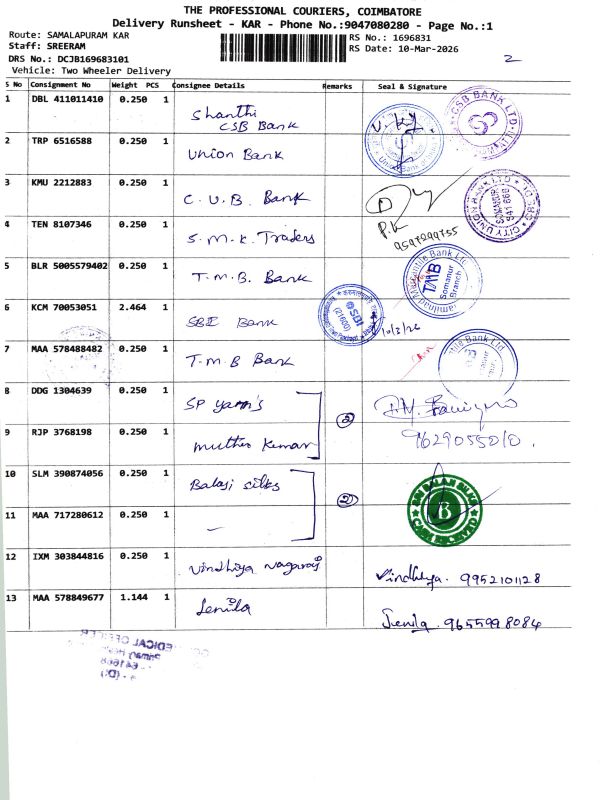 THE PROFESSIONAL COURIERS, COIMBATORE
Delivery Runsheet - KAR - Phone No.:9047080280 - Page No.:1
Route: SAMALAPURAM KAR
RS No.: 1696831
Staff: SREERAM
RS Date: 10-Mar-2026
DRS No.: DCJB169683101
2
Vehicle: Two Wheeler Delivery
S No Consignment No Weight PCS Consignee Details Remarks Seal & Signature
1 DBL 411011410 0.250 1 Shanthi CSB Bank
CSB BANK LTD
2 TRP 6516588 0.250 1 Union Bank
3 KMU 2212883 0.250 1 C.U.B. Bank
CITY UNION BANK LTD
SOMANUR
641 668
4 TEN 8107346 0.250 1 S.M.K. Traders
P.K
9597299755
5 BLR 5005579402 0.250 1 T.M.B. Bank
Tamilnad Mercantile Bank Ltd
TMB
Somanur
Branch
6 KCM 70053051 2.464 1 SBI Bank
SBI
(21600)
10/3/26
7 MAA 578488482 0.250 1 T.M.B Bank
Bank Ltd
8 DDG 1304639 0.250 1 SP yarn's
2
9 RJP 3768198 0.250 1 Muthu Kumar
9629055010.
10 SLM 390874056 0.250 1 Balaji silks
2
SRI BALAJI SILKS
B
11 MAA 717280612 0.250 1 -
12 IXM 303844816 0.250 1 Vindhiya Nagaraj
Vindhiya. 9952101128
13 MAA 578849677 1.144 1 Jenila
Jenila. 9655998084
MEDICAL OFFICER
Primary Health
641668